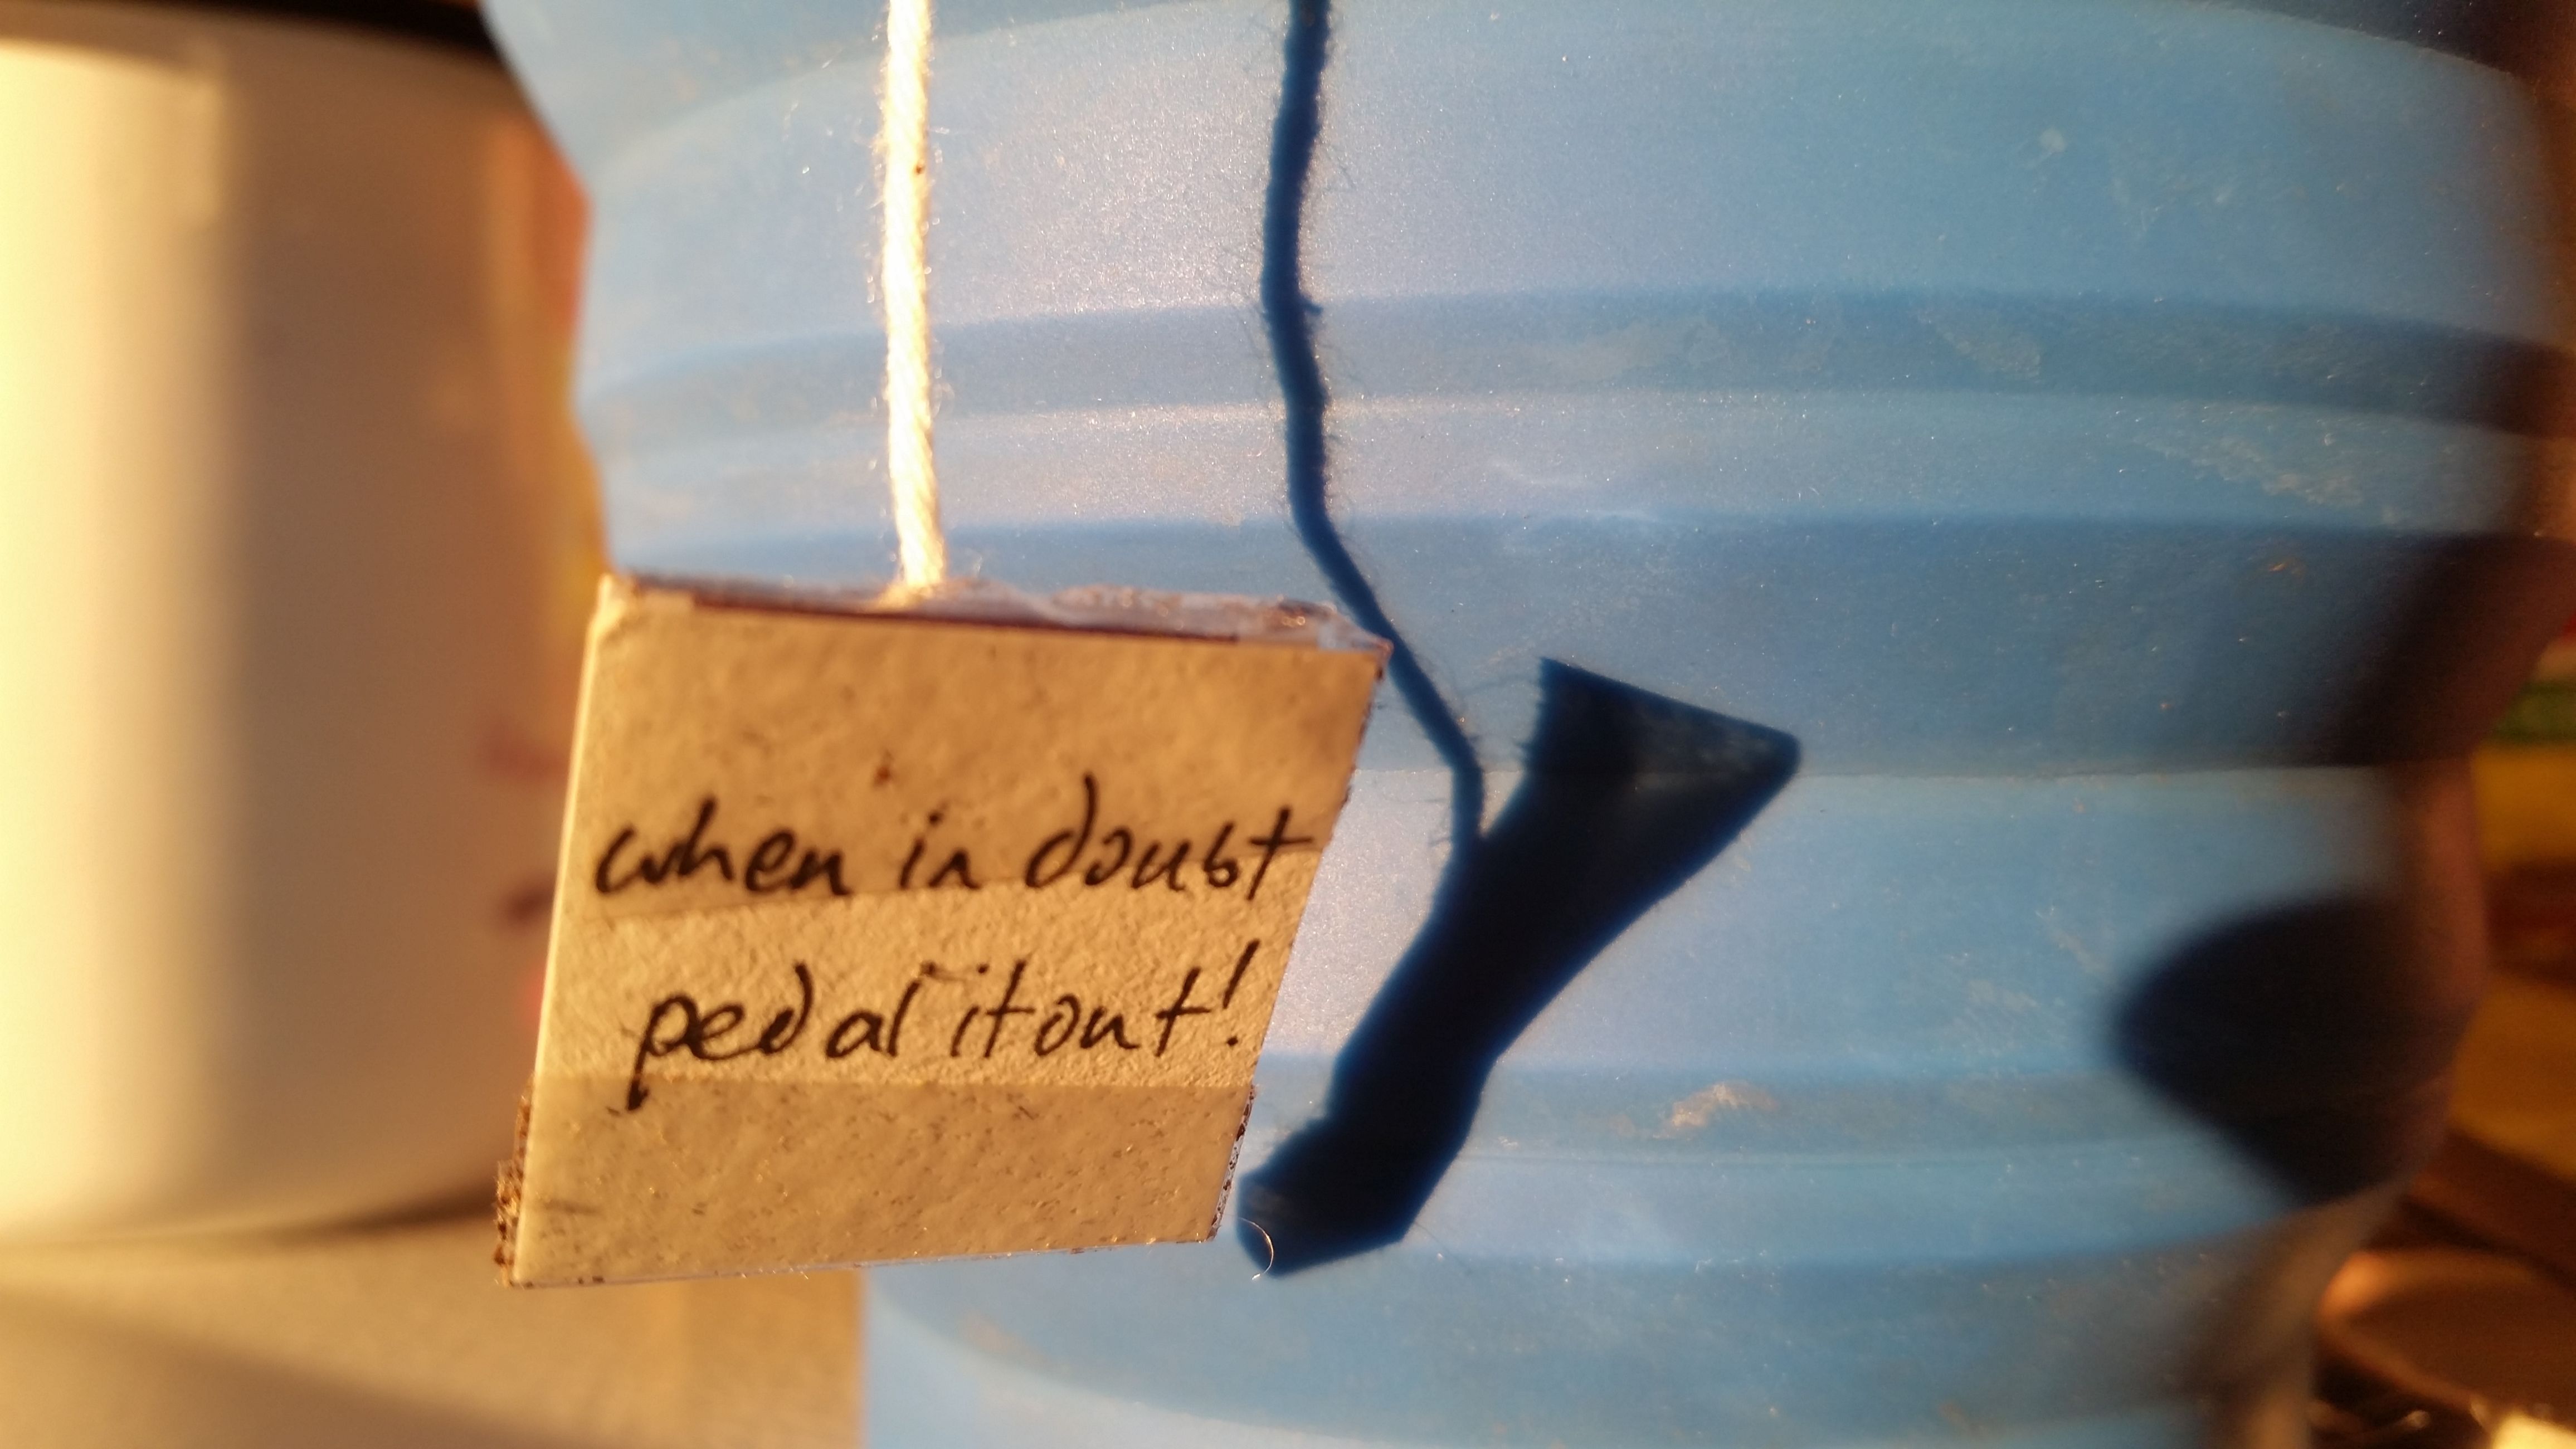 when in doubt
pedal it out!